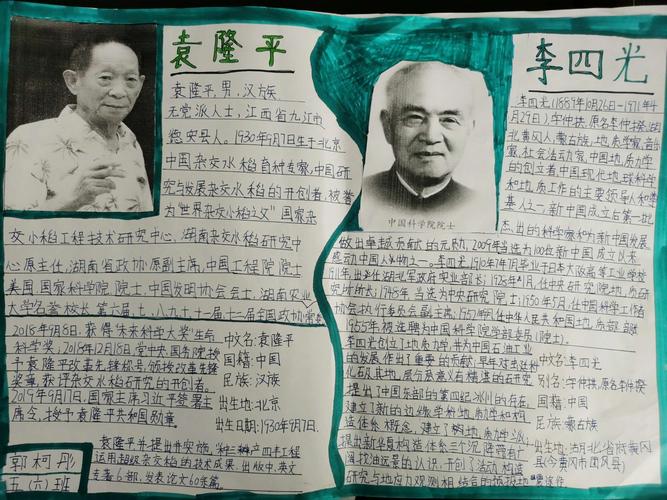 袁隆平
袁隆平,男,汉族
无党派人士,江西省九江市
德安县人。1930年9月7日生于北京
中国杂交水稻育种专家,中国研
究与发展杂交水稻的开创者,被誉
为"世界杂交水稻之父"国家杂
交水稻工程技术研究中心、湖南杂交水稻研究中
心原主任,湖南省政协原副主席,中国工程院院士
美国国家科学院院士,中国发明协会会士,湖南农业
大学名誉校长,第六届七、八九十十一届十二届全国政协常委
2018年9月8日,获得"未来科学大奖"生命
科学奖;2018年12月18日,党中央、国务院授
予袁隆平改革先锋称号,颁授改革先锋
奖章,获评杂交水稻研究的开创者。
2019年9月17日,国家主席习近平签署主
席令,授予袁隆平共和国勋章。
中文名:袁隆平
国籍:中国
民族:汉族
出生地:北京
出生日期:1930年9月7日
袁隆平并提出并实施"种三产四丰工程
运用超级杂交稻的技术成果,出版中、英文
专著6部,发表论文60余篇
郭柯彤
五(六)班
李四光
李四光(1889年10月26日-1971年4
月29日),字仲拱,原名李仲揆,湖
北黄冈人,蒙古族,地质学家、音乐
家、社会活动家,中国地质力学
的创立者、中国现代地球科学
和地质工作的主要领导人和奠
基人之一,新中国成立后第一批
杰出的科学家和为新中国发展
中国科学院院士
做出卓越贡献的元勋,2009年当选为100位新中国成立以来
感动中国人物之一。李四光1910年7月毕业于日本大阪高等工业学校
1911年,出任湖北军政府实业部长;1928年1月,任中央研究院地质研
究所所长;1948年当选为中央研究院院士;1950年5月,任中国科学工作者
协会执行委员会副主席;1952年9月任中华人民共和国地质部部长
1955年被选聘为中国科学院学部委员(院士)。
李四光创立了地质力学,并为中国石油工业
的发展作出了重要的贡献,早年对蜓科
化石及其地层分层意义有精湛的研究
提出了中国东部的第四纪冰川的存在,
建立了新的边缘学科地质力学和构
造体系概念,建立了地质力学派;
提出新华夏构造体系三个沉降带有广
阔找油远景的认识,开创了活动构造
研究与地应力观测相结合的预报地震途径
中文名:李四光
别名:字仲拱,原名李仲揆
国籍:中国
民族:蒙古族
出生地:湖北省府黄冈
县(今黄冈市团风县)